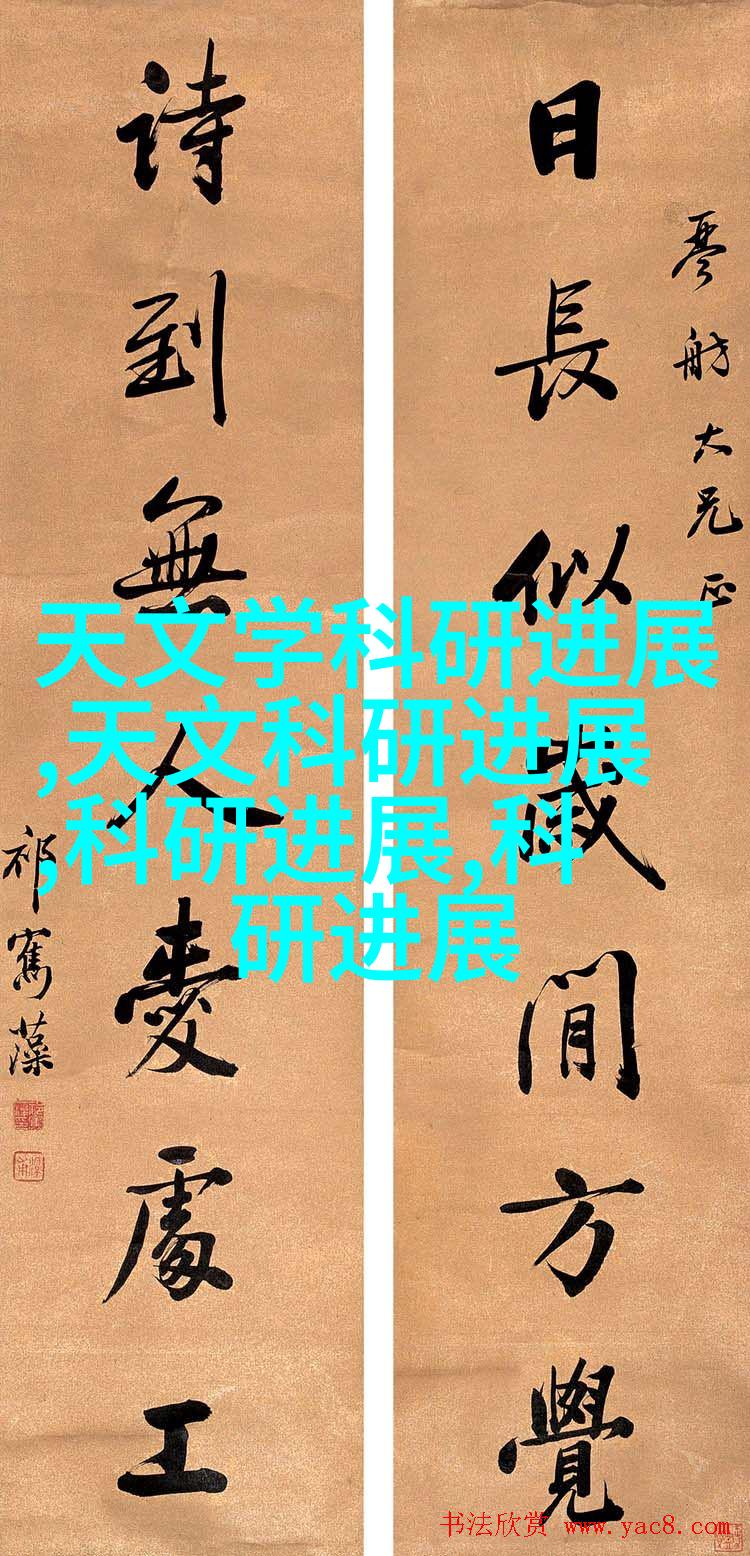 日長似歲閒方覺
琴舫大兄正
詩到無人愛處工
祁寯藻
天文学科研进展
,天文科研进展
,科研进展,科
研进展
书法欣赏 www.yac8.com